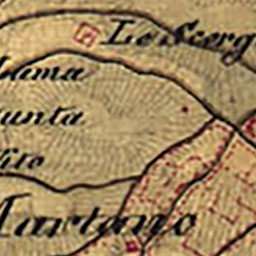 Le Scerg
lama
unta
Vito
Martano